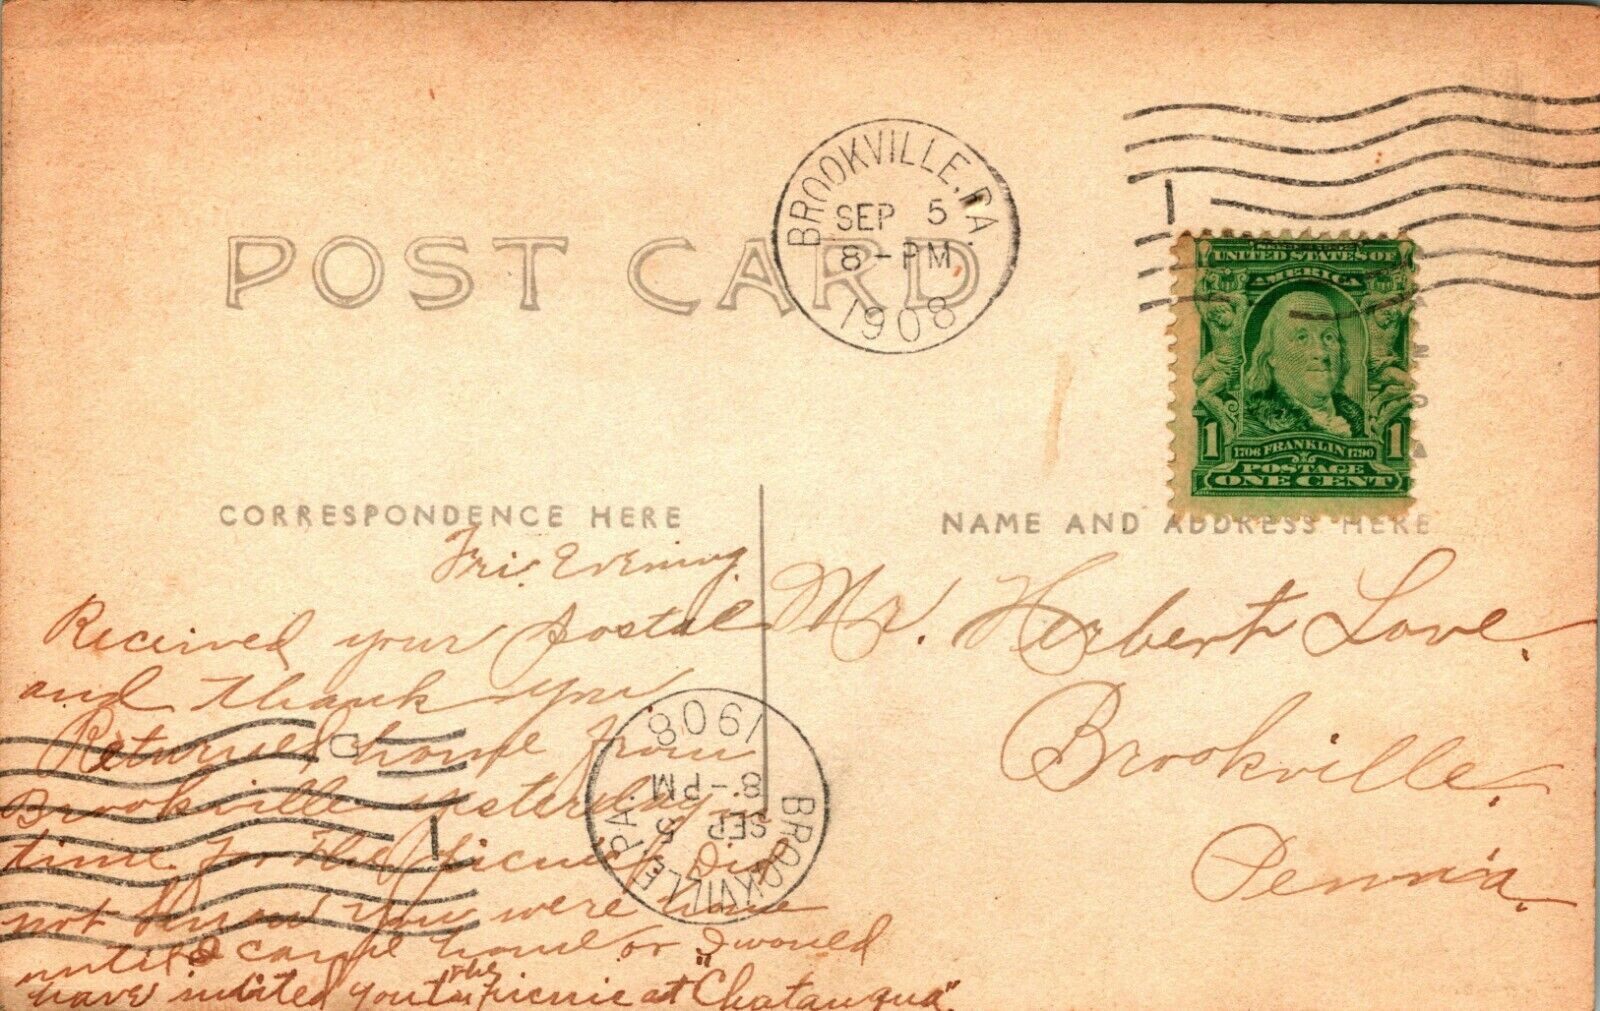 POST CARD
BROOKVILLE, PA.
SEP 5
8-PM
1908
UNITED STATES OF
AMERICA
1 1706 FRANKLIN 1790 1
POSTAGE
ONE CENT
CORRESPONDENCE HERE
NAME AND ADDRESS HERE
Fri. Evening.
Received your postal
and thank you
Returned home from
Brookville yesterday in
time for the picnic. Did
not know you were home
until I came home or I would
have invited you to the picnic at "Chatauqua".
Mr. Herbert Love.
Brookville.
Penn'a.
BROOKVILLE, PA.
SEP 5
8-PM
1908
D